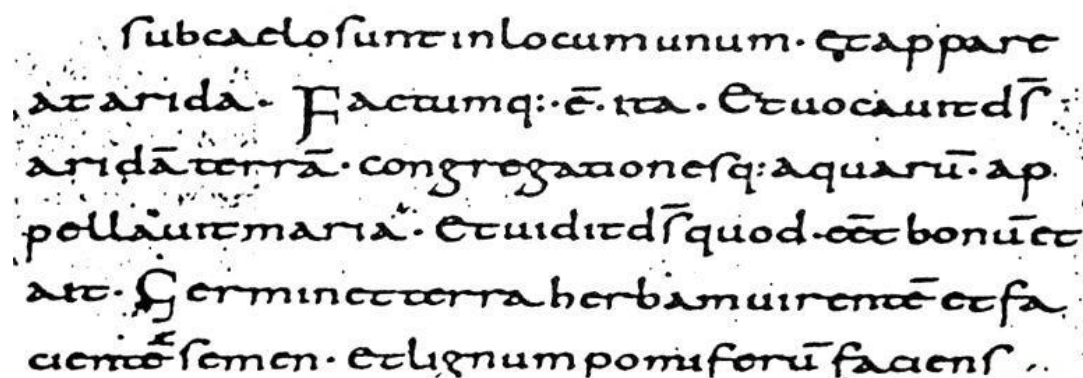 subcaelo sunt in locum unum · et appare
at arida · Factumq: · ē · ita · Et uocauit ds̄
aridā terrā · congregationesq: aquarū · ap
pellauit maria · Et uidit ds̄ quod · eēt bonū et
ait · Germinet terra herbam uirentē et fa
cientē semen · et lignum pomiferū faciens